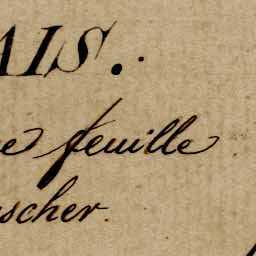 AIS.
e feuille
scher.